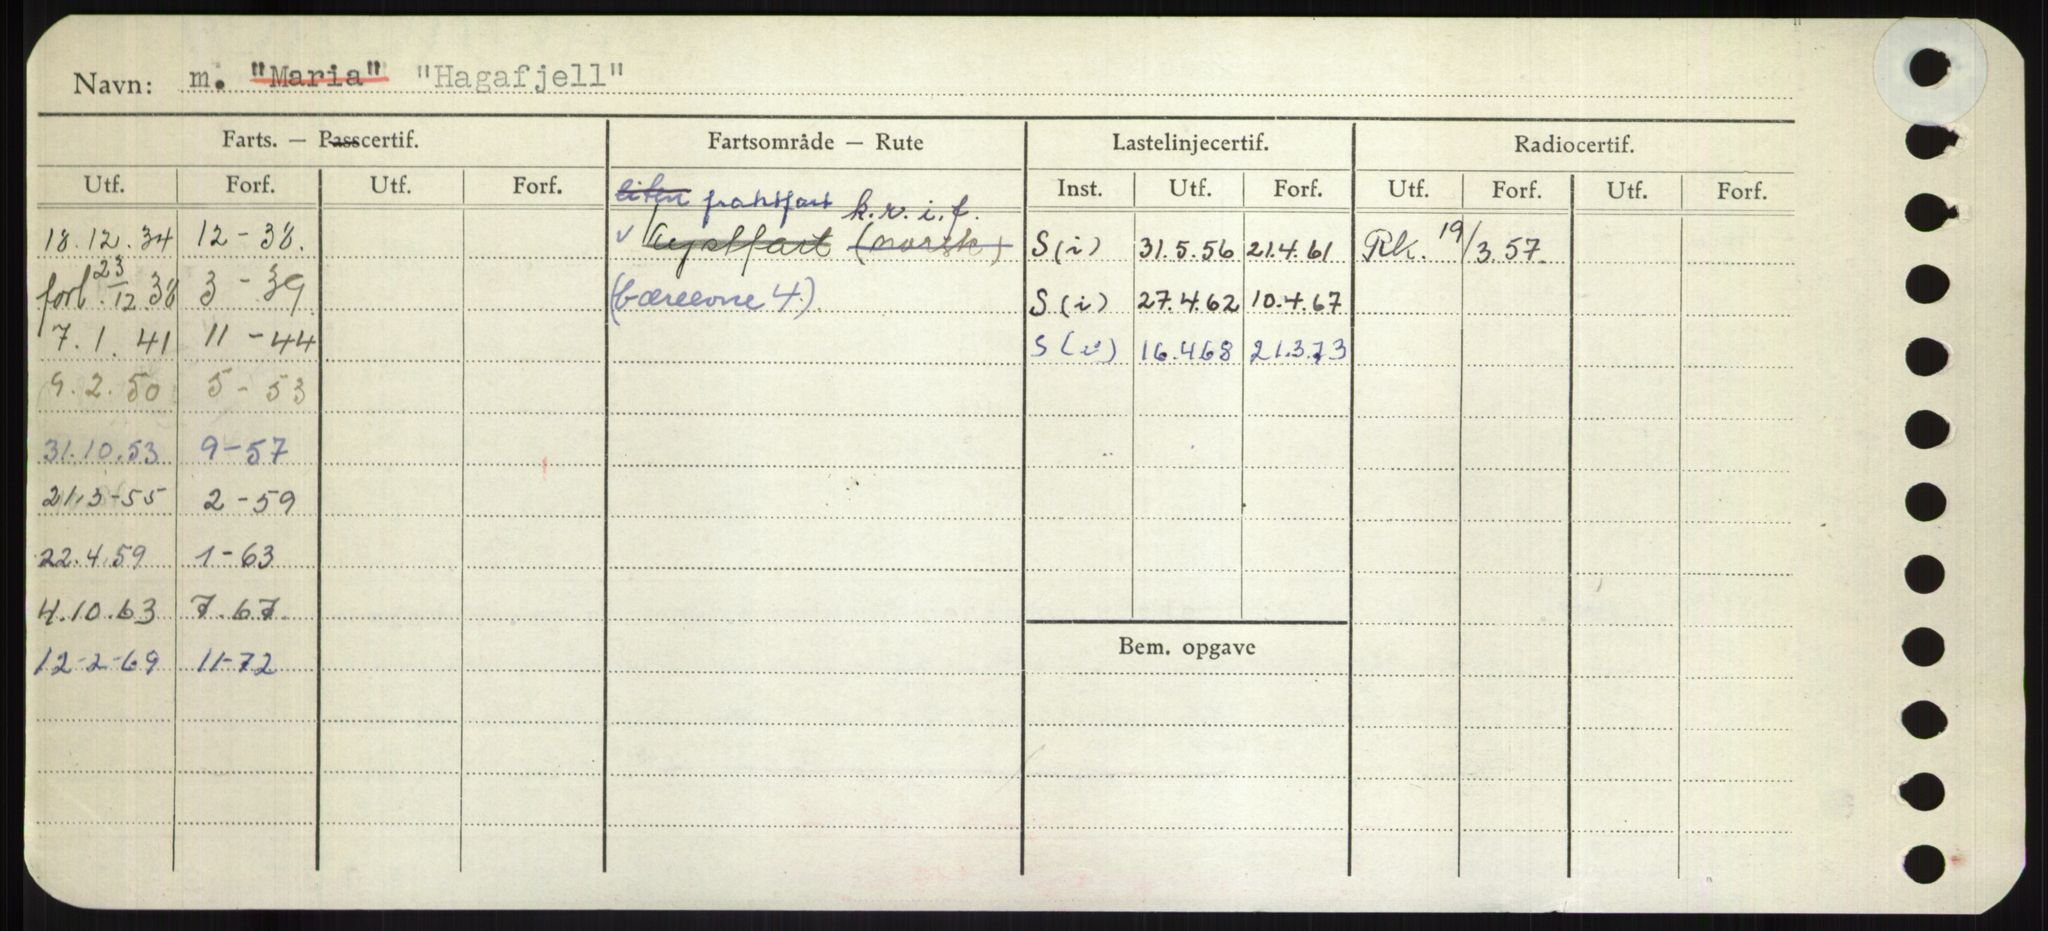 Navn: m. "Maria" "Hagafjell"
Farts. — Passcertif. Fartsområde — Rute Lastelinjecertif. Radiocertif.
Utf. Forf. Utf. Forf. Inst. Utf. Forf. Utf. Forf. Utf. Forf.
liten fraktfart k.v.i.f.
18.12.34 12-38. v Kystfart (norsk) S(i) 31.5.56 21.4.61 Rk. 19/3 57.
forl. 23/12 38 3-39 (bæreevne 4.) S(i) 27.4.62 10.4.67
7.1.41 11-44 S(i) 16.4.68 21.3.73
9.2.50 5-53
31.10.53 9-57
21.3-55 2-59
22.4.59 1-63
4.10.63 7.67.
Bem. opgave
12-2-69 11-72